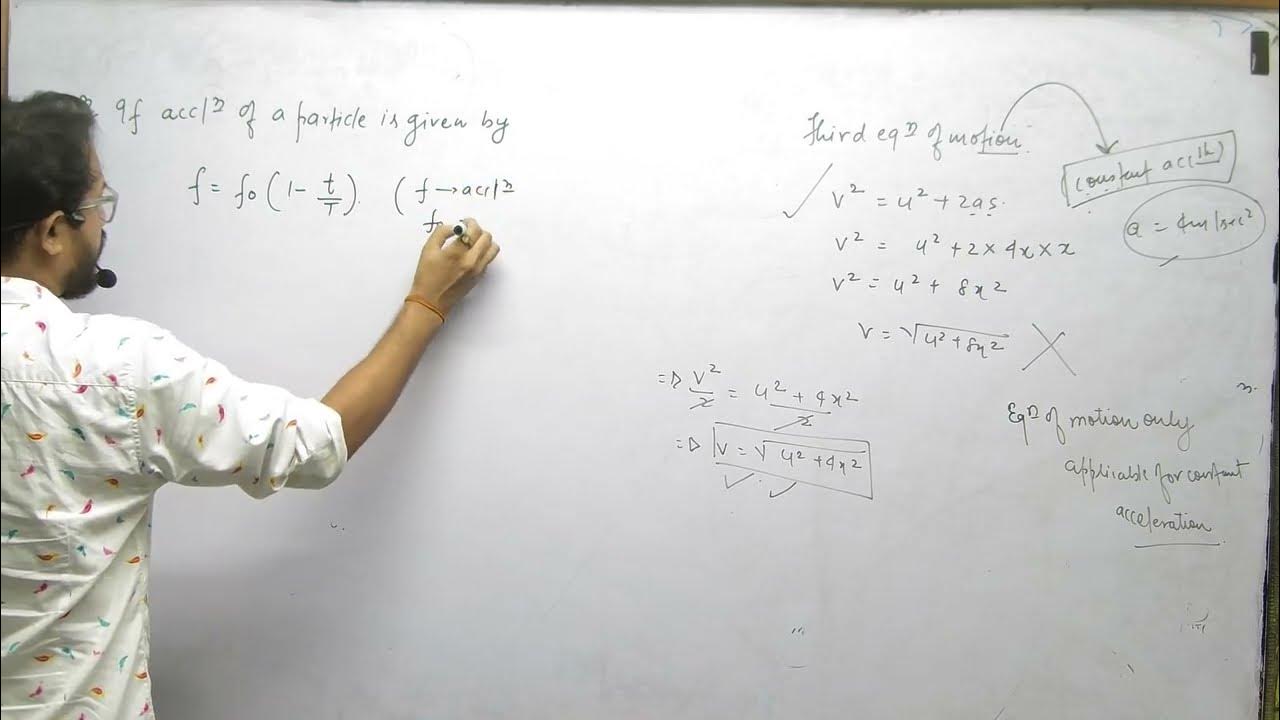 If accl^n of a particle is given by
f = f₀ (1 - t/T). ( f → accl^n
Third eq^n of motion
constant acc(^th)
v² = u² + 2as.
a = 4m/sec²
v² = u² + 2 × 4x × x
v² = u² + 8x²
v = √(u² + 8x²)
⇒ v²/2 = (u² + 4x²)/2
⇒ v = √(u² + 4x²)
Eq^n of motion only
applicable for constant
acceleration